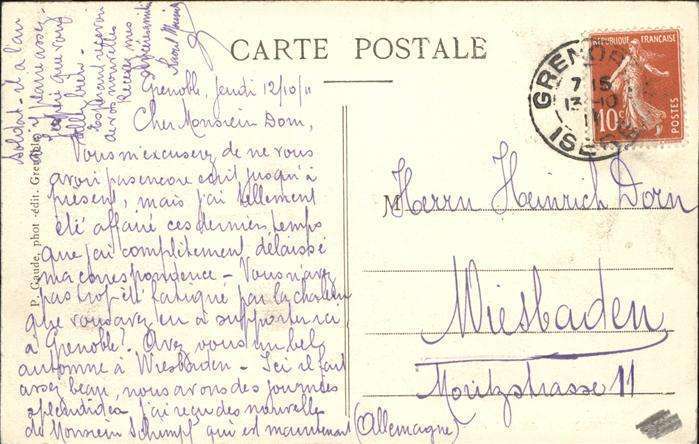 CARTE POSTALE
Grenoble, Jeudi 12/10/11
Cher Monsieur Dorn,
Vous m'excuserez de ne vous
avoir pas encore écrit jusqu'à
présent, mais j'ai tellement
été affairé ces derniers temps
que j'ai complètement délaissé
ma correspondance – Vous n'avez
pas trop été fatigué par la chaleur
que vous avez eu à supporter ici
à Grenoble? Avez vous un bel
automne à Wiesbaden – Ici il fait
assez beau, nous avons des journées
splendides j'ai reçu des nouvelles
de Monsieur Schimpf qui est maintenant
soldat – il a l'air
de s'y plaire assez –
J'espère que vous
allez bien –
Recevez mes
P. Gaude, phot.-édit. Grenoble
RÉPUBLIQUE FRANÇAISE
10
GRENOBLE
7 15
13-10
11
ISERE
M Herrn Heinrich Dorn
Wiesbaden
Moritzstrasse 11
(Allemagne)